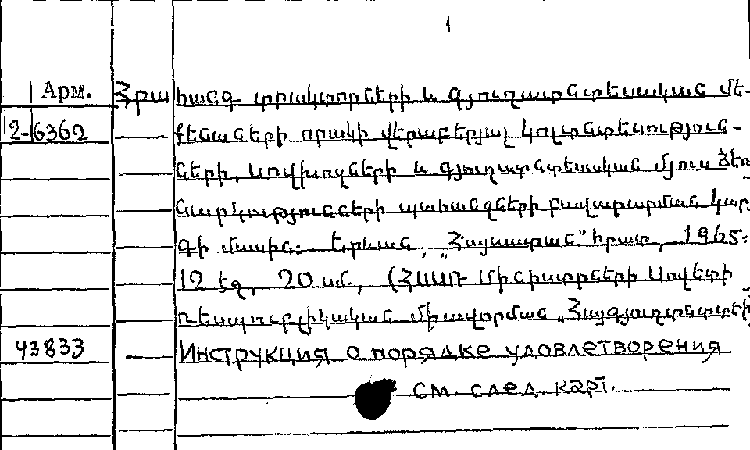 1
Арм. Հրահանգ տրակտորների և գյուղատնտեսական մե-
12-6362 քենաների որակի վերաբերյալ կոլտնտեսություն-
ների, սովխոզների և գյուղատնտեսական մյուս ձեռ
նարկությունների պահանջների բավարարման կար
գի մասին: Երևան, „Հայաստան" հրատ, 1965:
12 էջ, 20 սմ, (ՀՍՍՌ Մինիստրների Սովետի
ռեսպուբլիկական միավորման „Հայգյուղտնտտեխ
43833 Инструкция о порядке удовлетворения
см. след. карт.